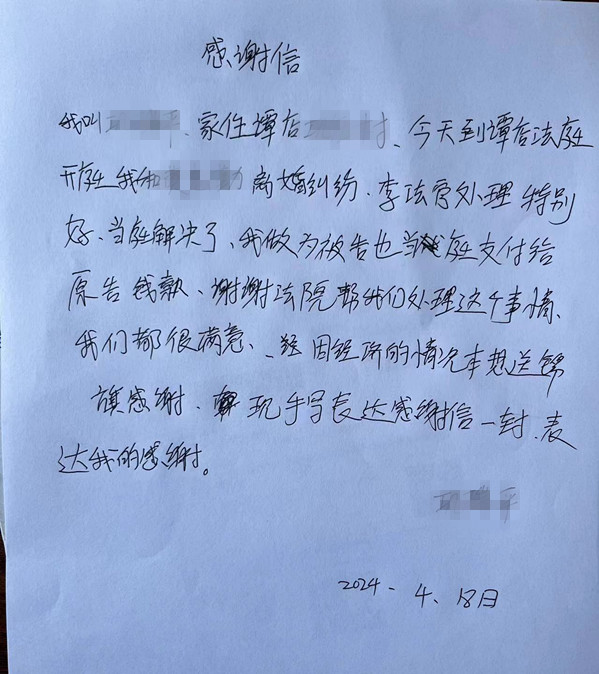 感谢信
我叫 平、家住谭店 村、今天到谭店法庭
开庭我和 离婚纠纷、李法官处理特别
好、当庭解决了、我做为被告也当庭支付给
原告钱款、谢谢法院帮我们处理这个事情、
我们都很满意、因经济的情况本想送锦
旗感谢、现手写表达感谢信一封、表
达我的感谢。
平
2024-4、18日